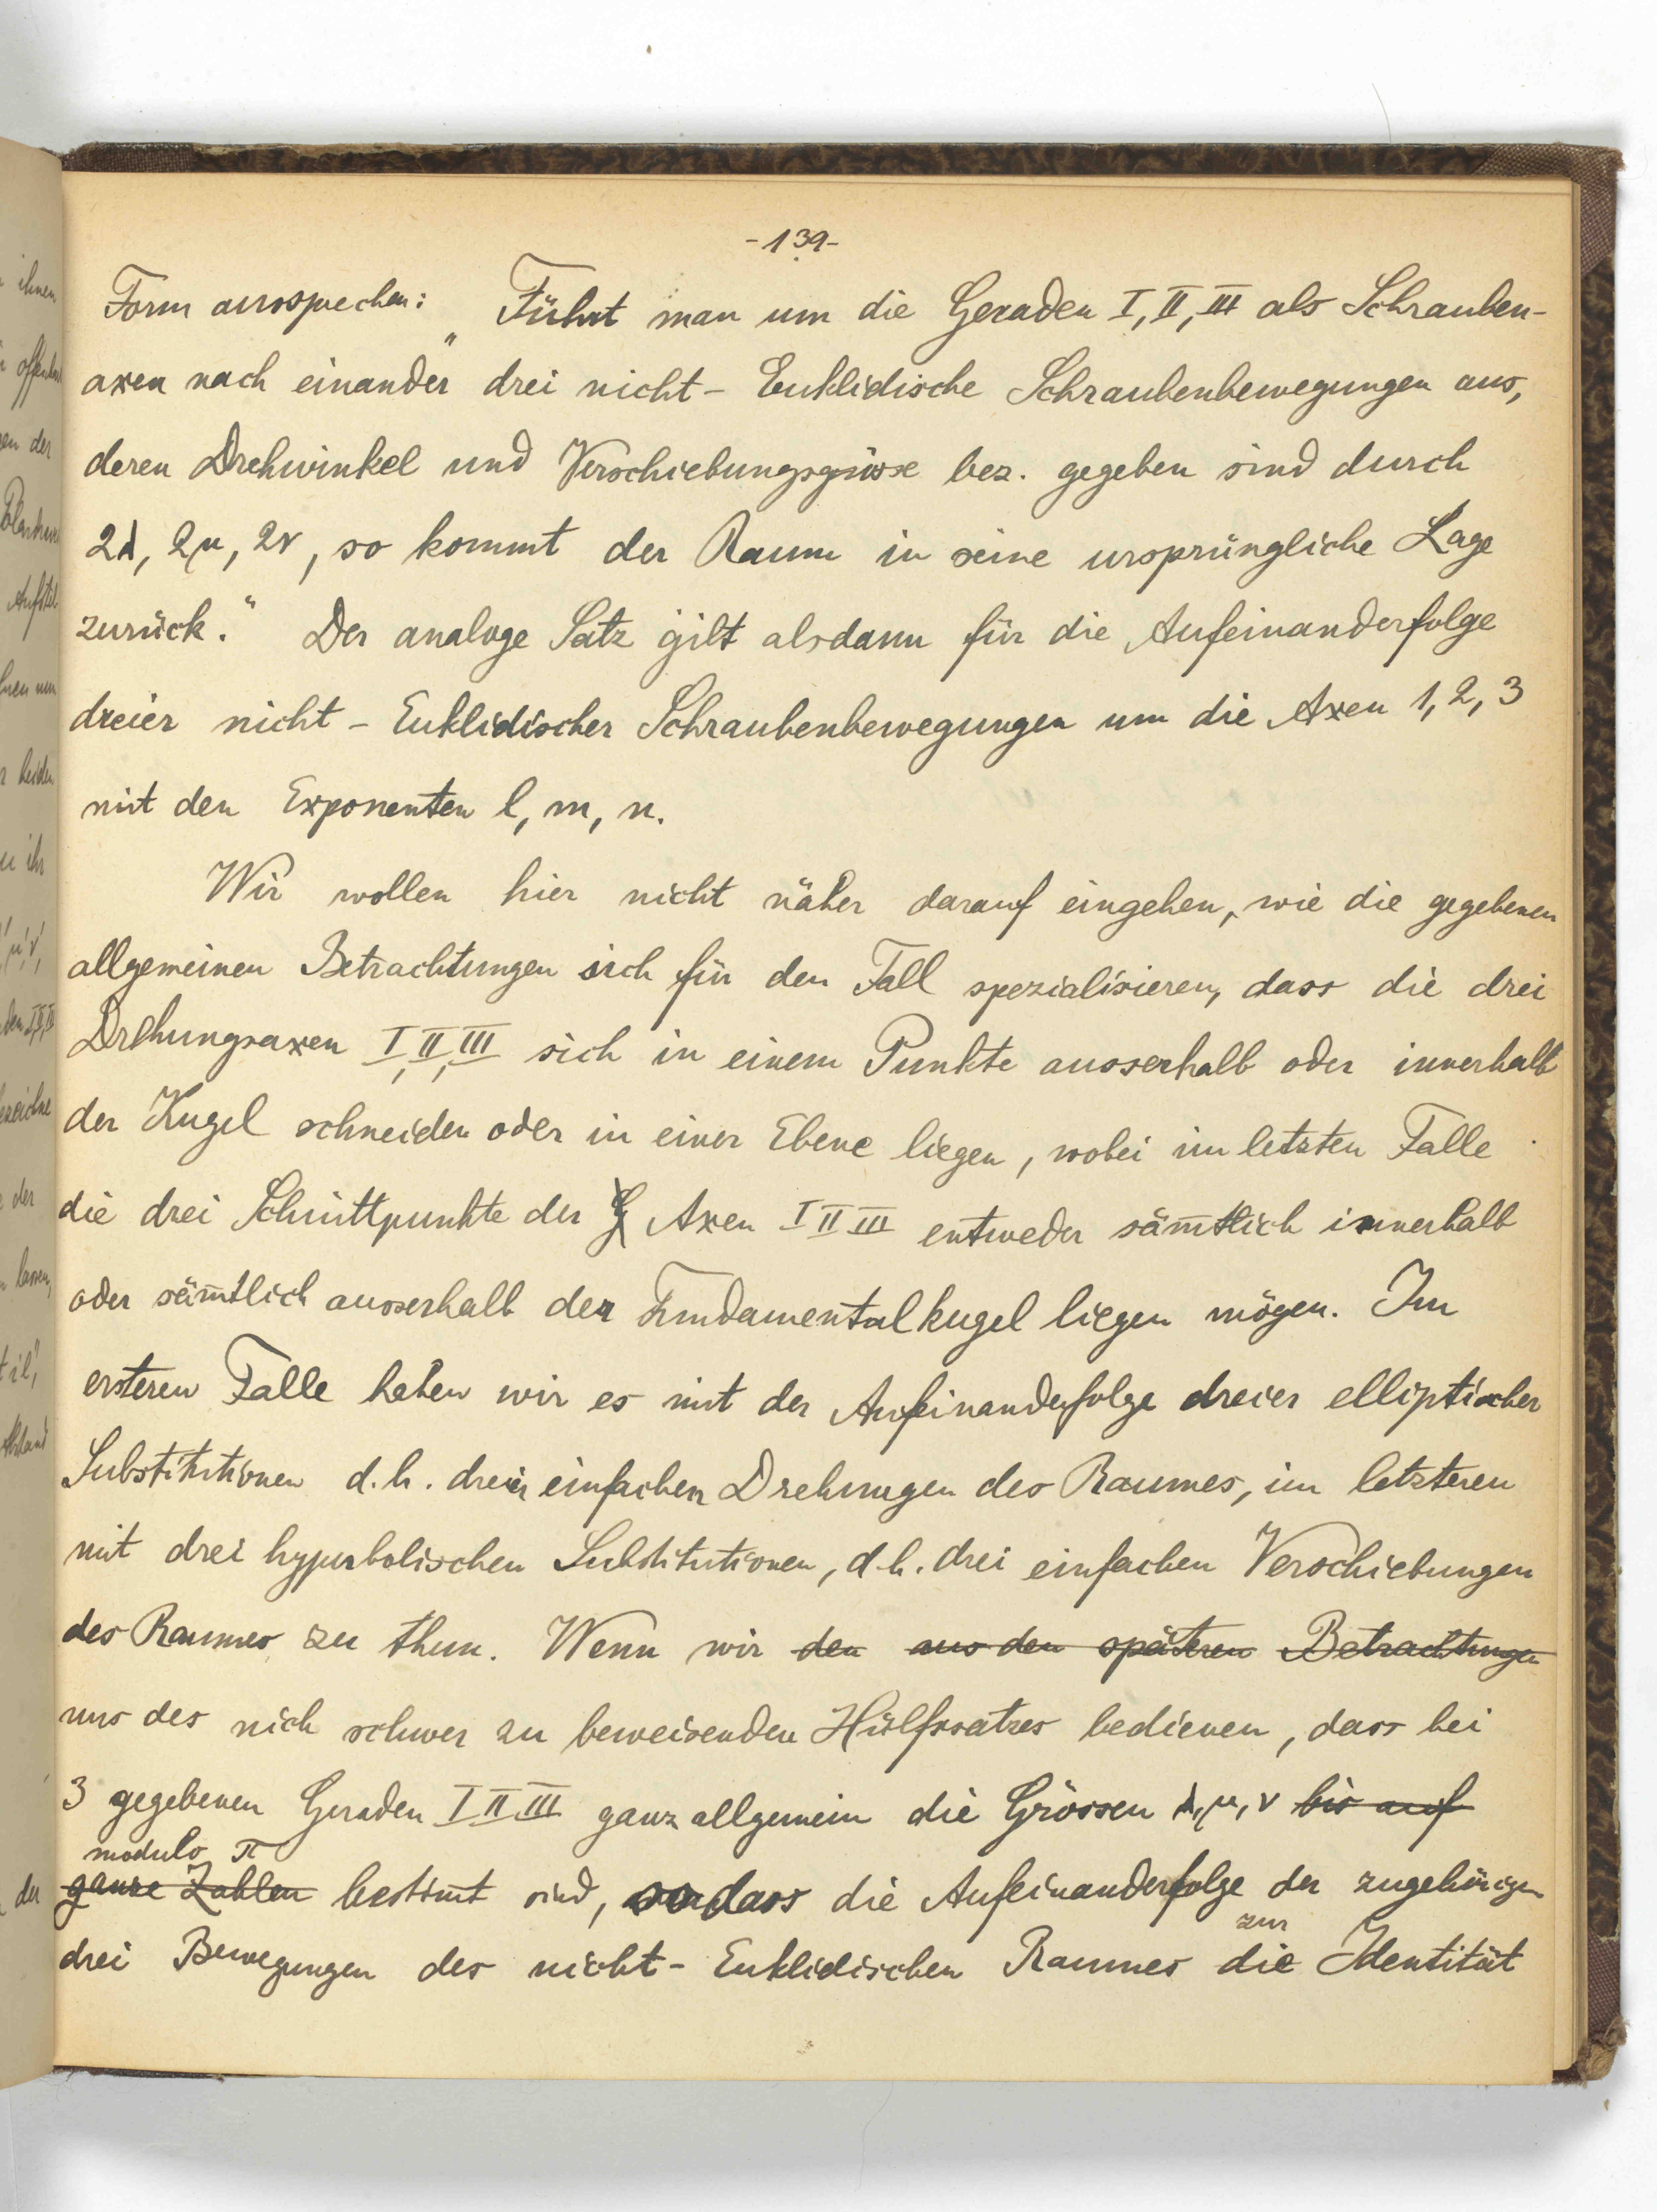 -139-
Form aussprechen: „Führt man um die Geraden I, II, III als Schrauben-
axen nach einander drei nicht- Euklidische Schraubenbewegungen aus,
deren Drehwinkel und Verschiebungsgrösse bez. gegeben sind durch
2λ, 2μ, 2ν, so kommt der Raum in seine ursprüngliche Lage
zurück." Der analoge Satz gilt alsdann für die Aufeinanderfolge
dreier nicht- Euklidischer Schraubenbewegungen um die Axen 1, 2, 3
mit den Exponenten l, m, n.
Wir wollen hier nicht näher darauf eingehen, wie die gegebenen
allgemeinen Betrachtungen sich für den Fall spezialisieren, dass die drei
Drehungsaxen I, II, III sich in einem Punkte ausserhalb oder innerhalb
der Kugel schneiden oder in einer Ebene liegen, wobei im letzten Falle
die drei Schnittpunkte der G Axen I II III entweder säm̅tlich innerhalb
oder säm̅tlich ausserhalb der Fundamentalkugel liegen mögen. Im
ersteren Falle haben wir es mit der Aufeinanderfolge dreier elliptischer
Substitutionen d.h. dreier einfachen Drehungen des Raumes, im letzteren
mit drei hyperbolischen Substitutionen, d.h. drei einfachen Verschiebungen
des Raumes zu thun. Wenn wir den aus den späteren Betrachtungen
uns des nich schwer zu beweisenden Hülfssatzes bedienen, dass bei
3 gegebenen Geraden I II III ganz allgemein die Grössen λ, μ, ν bis auf
modulo π
ganze Zahlen bestim̅t sind, sodass die Aufeinanderfolge der zugehörigen
zur
drei Bewegungen des nicht- Euklidischen Raumes die Identität